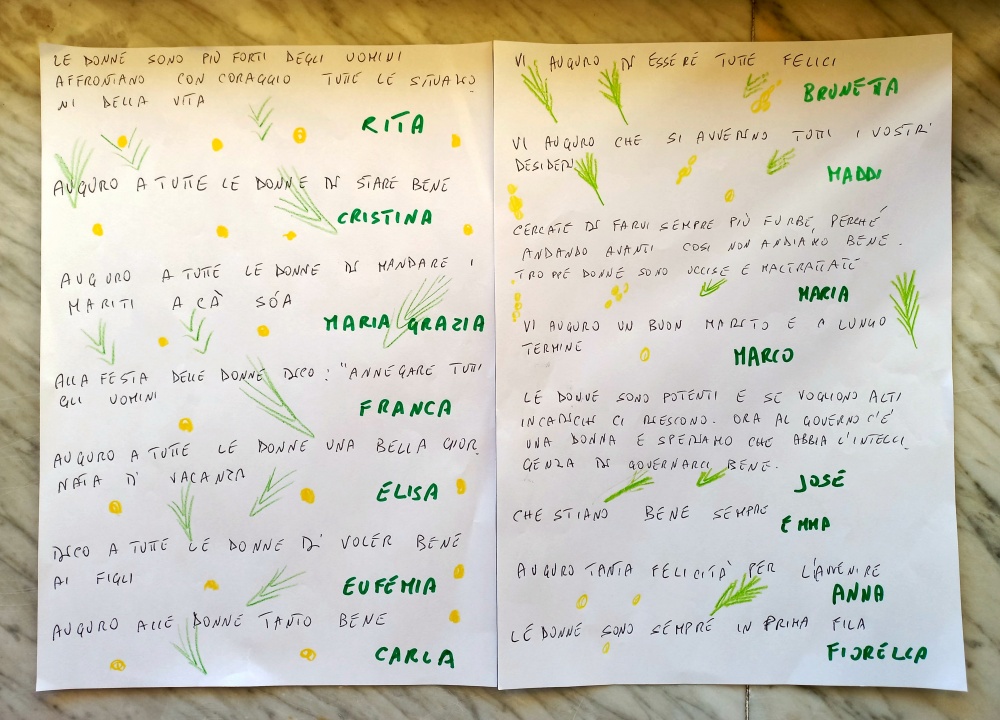 LE DONNE SONO PIÙ FORTI DEGLI UOMINI
AFFRONTANO CON CORAGGIO TUTTE LE SITUAZIO
NI DELLA VITA
RITA
AUGURO A TUTTE LE DONNE DI STARE BENE
CRISTINA
AUGURO A TUTTE LE DONNE DI MANDARE I
MARITI A CÀ SÓA
MARIA GRAZIA
ALLA FESTA DELLE DONNE DICO: "ANNEGARE TUTTI
GLI UOMINI
FRANCA
AUGURO A TUTTE LE DONNE UNA BELLA GIOR
NATA DI VACANZA
ELISA
DICO A TUTTE LE DONNE DI VOLER BENE
AI FIGLI
EUFEMIA
AUGURO ALLE DONNE TANTO BENE
CARLA
VI AUGURO DI ESSERE TUTTE FELICI
BRUNETTA
VI AUGURO CHE SI AVVERINO TUTTI I VOSTRI
DESIDERI
MADDI
CERCATE DI FARVI SEMPRE PIÙ FURBE, PERCHÉ
ANDANDO AVANTI COSI NON ANDIAMO BENE.
TROPPE DONNE SONO UCCISE E MALTRATTATE
MARIA
VI AUGURO UN BUON MARITO E A LUNGO
TERMINE
MARCO
LE DONNE SONO POTENTI E SE VOGLIONO ALTI
INCARICHI CI RIESCONO. ORA AL GOVERNO C'È
UNA DONNA E SPERIAMO CHE ABBIA L'INTELLI
GENZA DI GOVERNARCI BENE.
JOSÉ
CHE STIANO BENE SEMPRE
EMMA
AUGURO TANTA FELICITÀ PER L'AVVENIRE
ANNA
LE DONNE SONO SEMPRE IN PRIMA FILA
FIORELLA